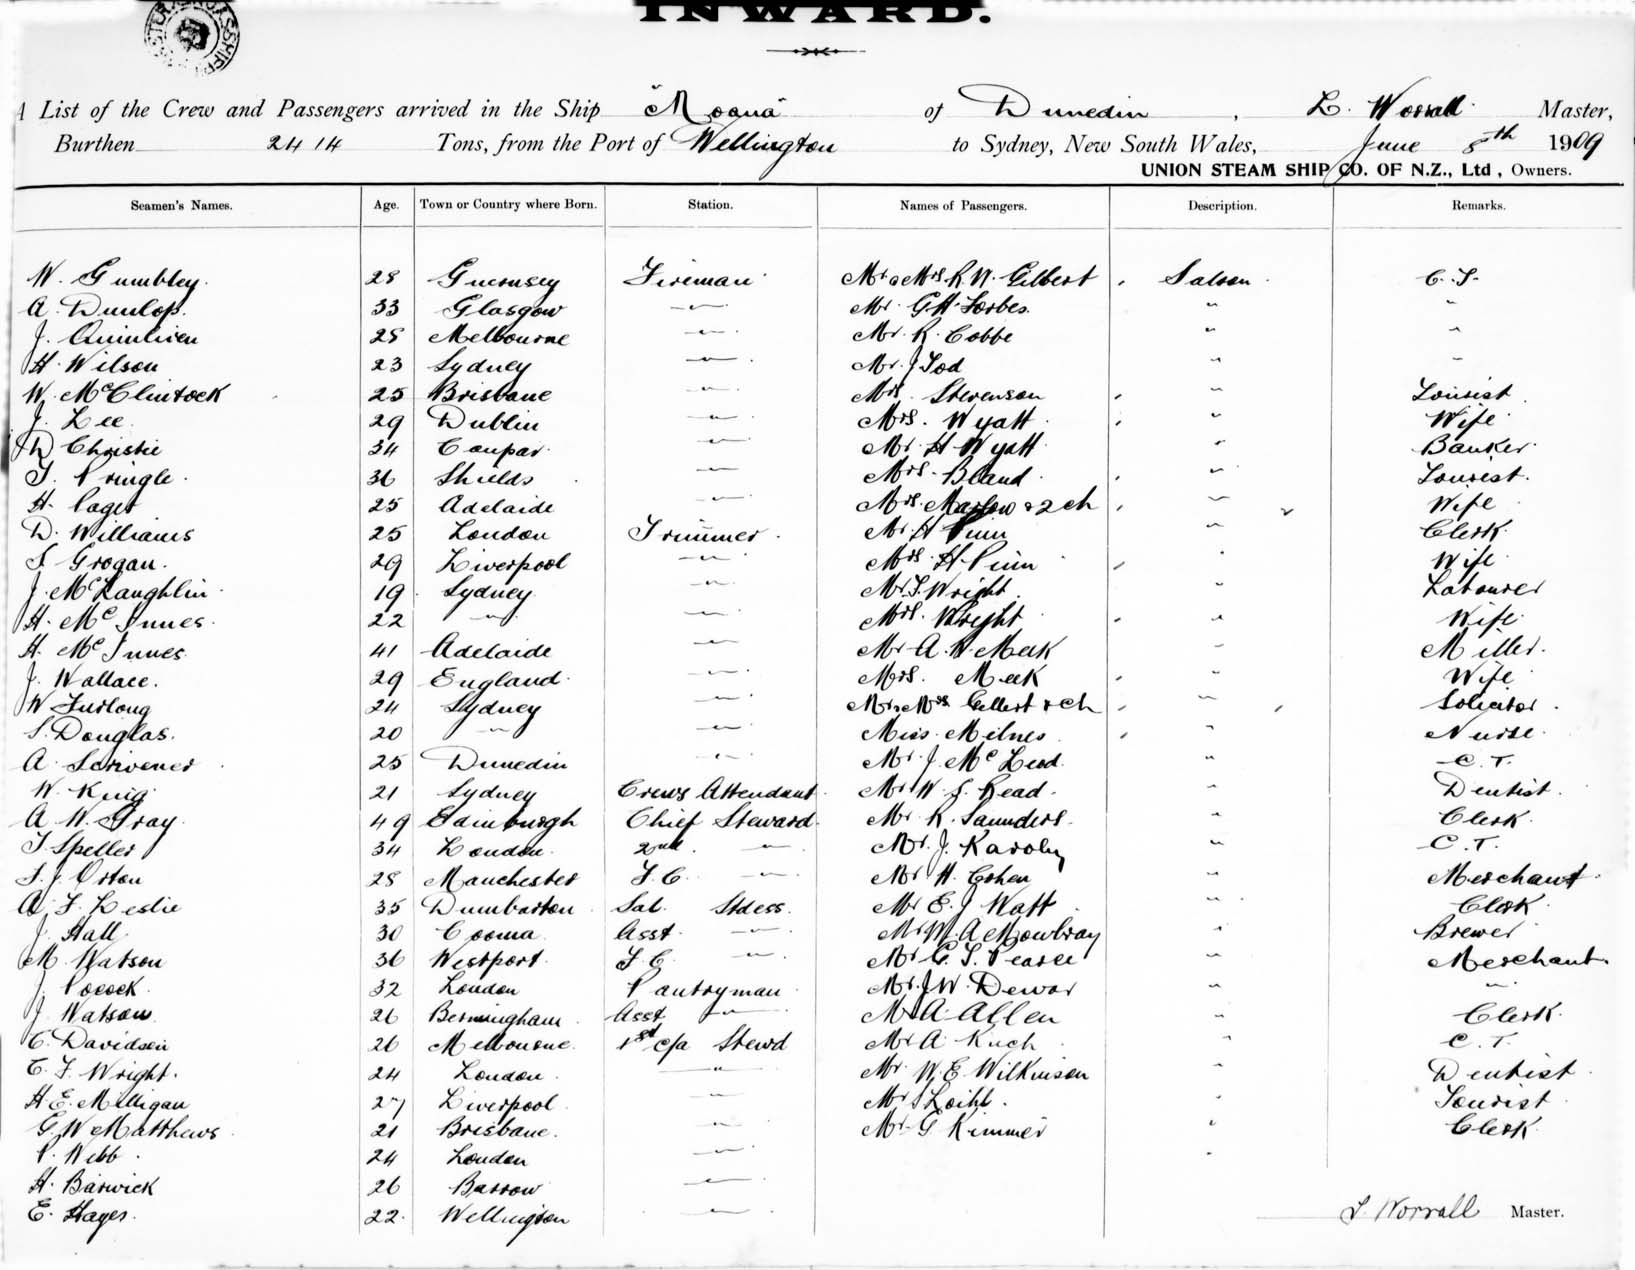 INWARD.
A List of the Crew and Passengers arrived in the Ship "Moana" of Dunedin, L. Worrall Master,
Burthen 2414 Tons, from the Port of Wellington to Sydney, New South Wales, June 8th 1909
UNION STEAM SHIP CO. OF N.Z., Ltd, Owners.
Seamen's Names. Age. Town or Country where Born. Station. Names of Passengers. Description. Remarks.
W. Gumbley. 28 Guernsey Fireman Mr & Mrs R. W. Gilbert Saloon C. T.
A. Dunlop. 33 Glasgow " Mr. G H Forbes. " "
J. Quinliven 28 Melbourne " Mr. R. Cobbe " "
H. Wilson 23 Sydney " Mr. J Tod " "
W. McClintock 25 Brisbane " Mrs. Stevenson " Tourist
J. Lee 29 Dublin " Mrs. Wyatt " Wife
D Christie 34 Coupar " Mr. H Wyatt " Banker
T. Pringle 36 Shields " Mrs. Bland " Tourist.
H. Paget 25 Adelaide " Mrs. Marlow & 2 ch " Wife
D. Williams 25 London Trimmer Mr. H Pinn " Clerk
T. Grogan. 29 Liverpool " Mrs. H. Pinn " Wife
J. McLaughlin 19 Sydney " Mr T. Wright " Labourer
H. McInnes 22 " " Mrs. Wright " Wife
H. McInnes 41 Adelaide " Mr A. W. Meek " Miller.
J. Wallace. 29 England " Mrs. Meek " Wife
W Furlong 24 Sydney " Mr & Mrs. Gellert & ch " Solicitor
S. Douglas. 20 " " Miss Milnes " Nurse
A. Scrivener 25 Dunedin " Mr. J. McLeod " C. T.
W. King 21 Sydney Crews Attendant Mr W. S. Read " Dentist
A W. Gray 49 Edinburgh Chief Steward Mr. R. Saunders " Clerk
T. Speller 34 London 2nd " Mr. J. Karoly " C. T.
S. J. Orton 28 Manchester F. C. " Mr H. Cohen " Merchant
A. F. Leslie 35 Dumbarton Sal. Stdess. Mr E. J Watt " Clerk
J. Hall 30 Cooma Asst. " Mr W. A Mowbray " Brewer
M. Watson 36 Westport F C " Mr C. T. Pearce " Merchant
J. Pocock 32 London Pantryman Mr. J W. Dewar " "
J. Watson 26 Bermingham Asst " Mr A. Allen " Clerk
C. Davidson 26 Melbourne 1st c/a Stewd Mr A. " C. T.
C. F. Wright. 24 London " Mr W. E Wilkinson " Dentist
H. E. Milligan 27 Liverpool " Mr S " Tourist
G. W. Matthews 21 Brisbane. " Mr G Kimmer " Clerk
P. Webb 24 London " "
H. Barwick 26 Barrow "
E. Hayes. 22 Wellington "
L. Worrall Master.